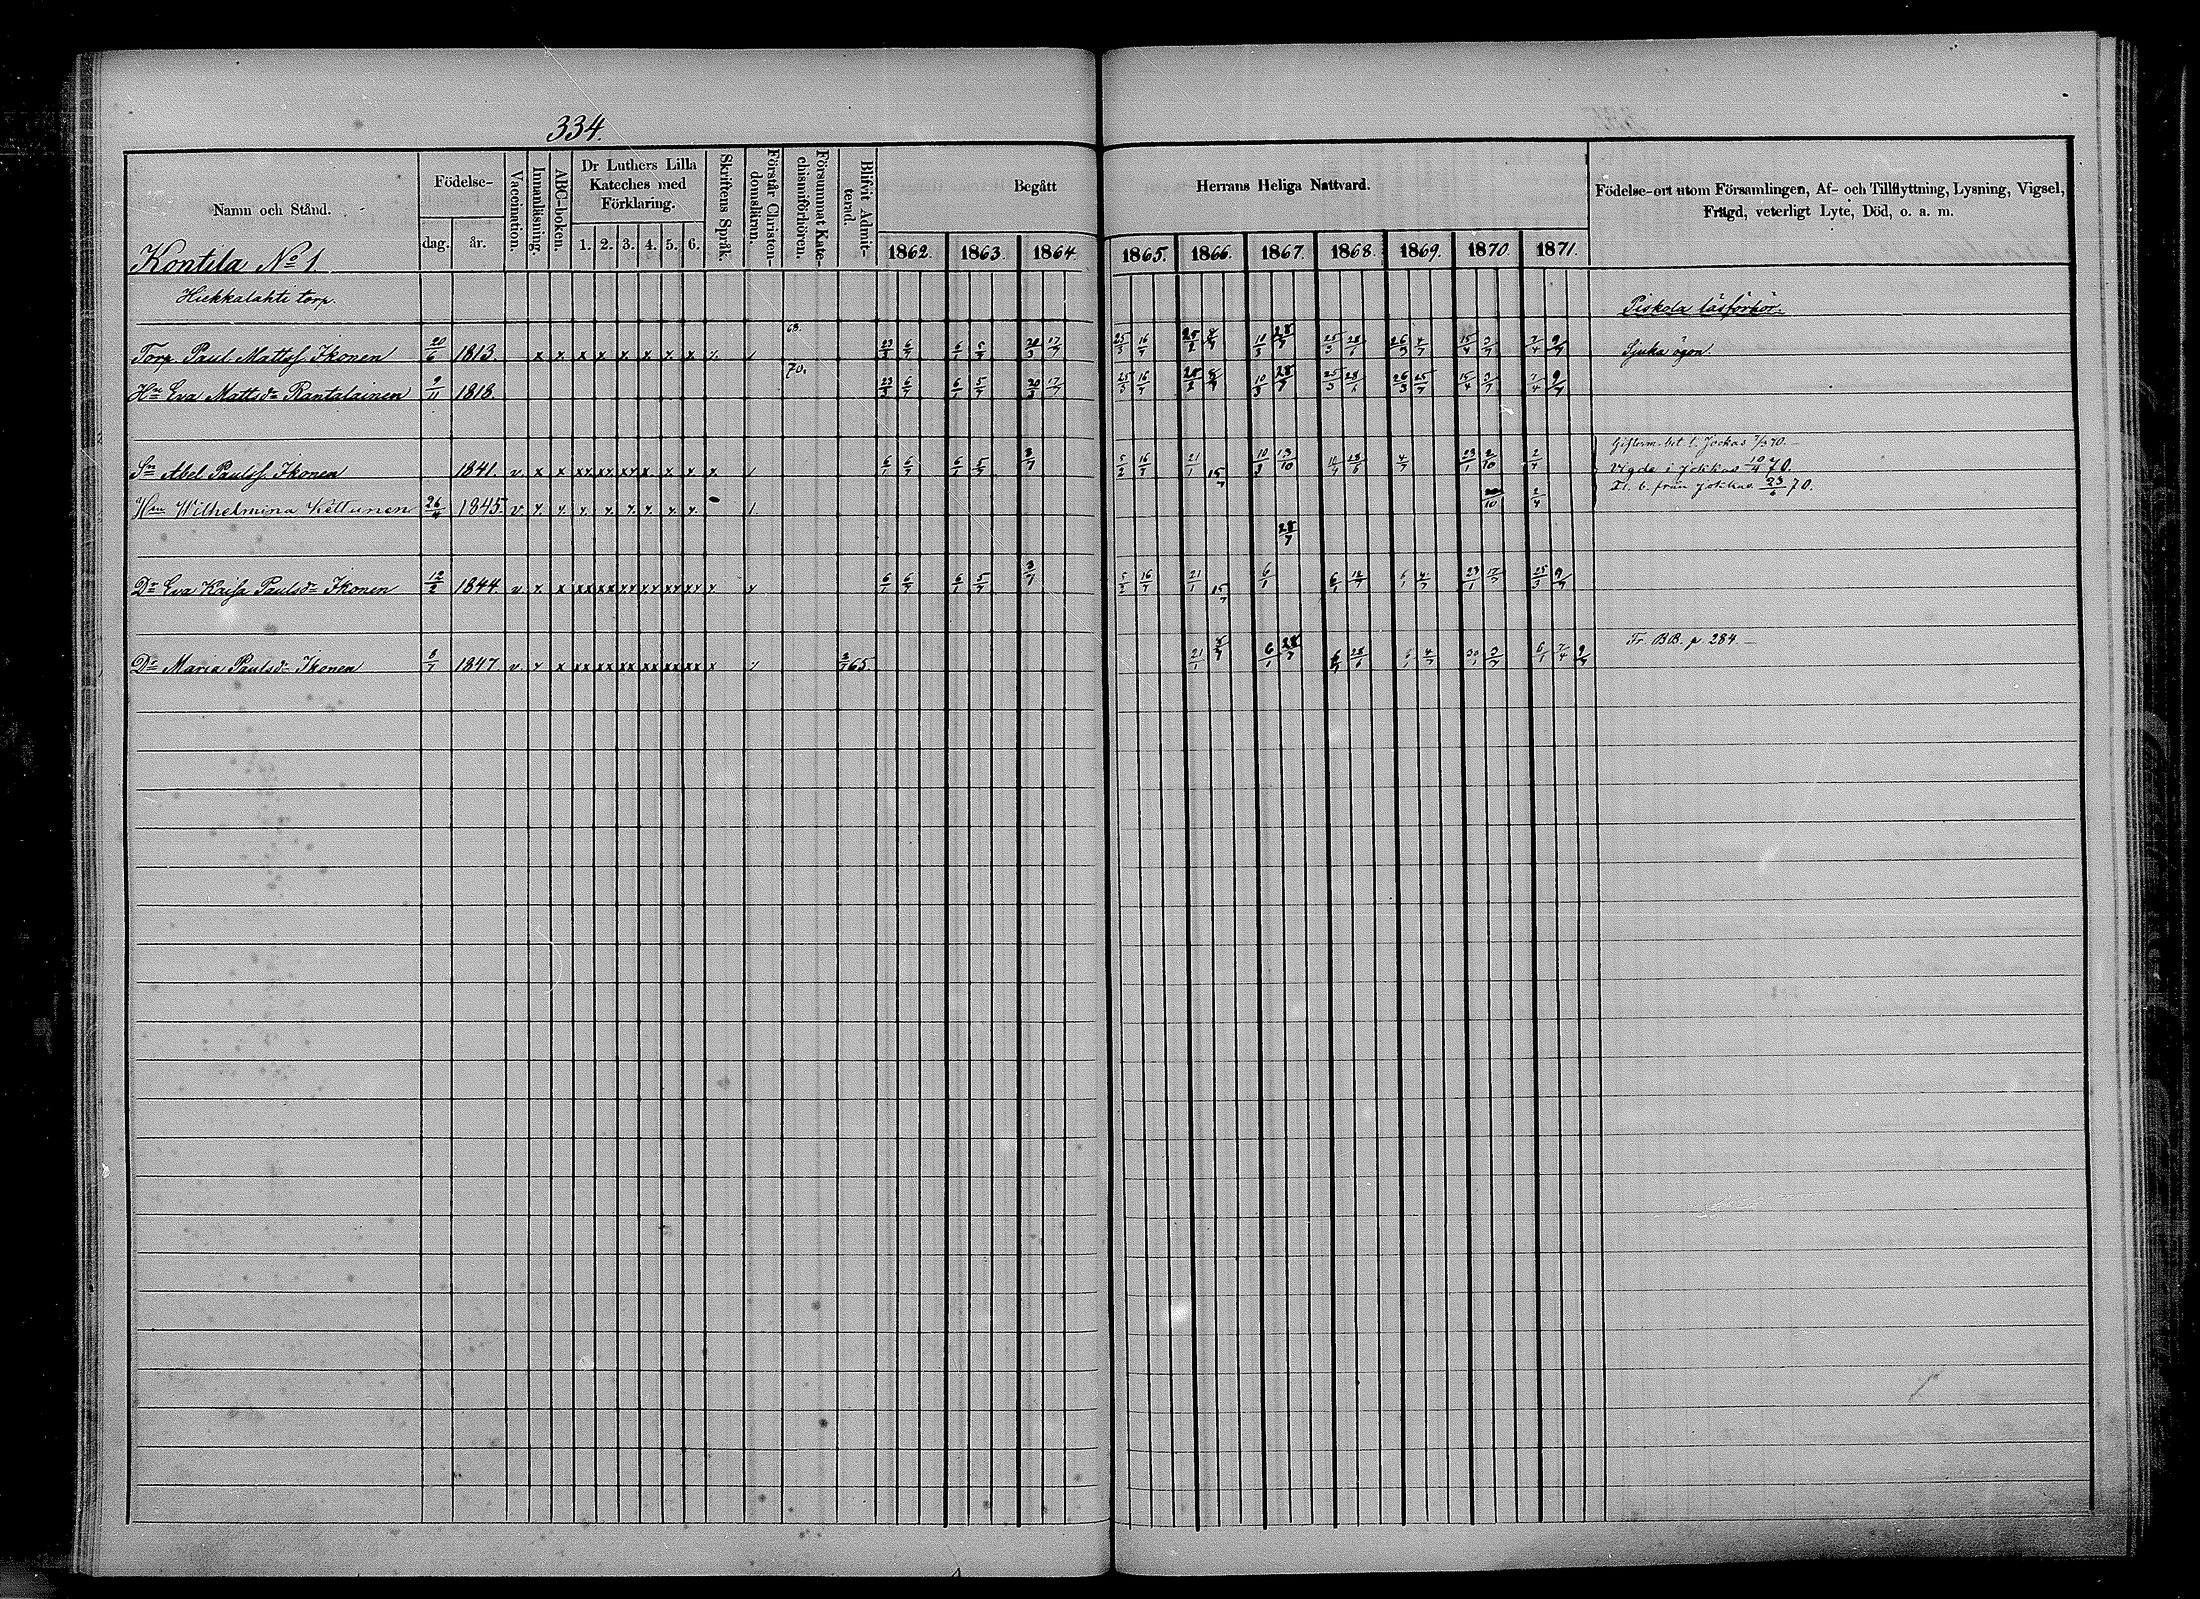 334.
Namn och Stånd.
Födelse-
dag. år.
Vaccination.
Innanläsning.
ABC-boken.
Dr Luthers Lilla Kateches med Förklaring.
1. 2. 3. 4. 5. 6.
Skriftens Språk.
Förstår Christendomsläran.
Försummat Katechismiförhören.
Blifvit Admitterad.
Begått Herrans Heliga Nattvard.
1862. 1863. 1864 1865. 1866. 1867. 1868. 1869. 1870. 1871.
Födelse-ort utom Församlingen, Af- och Tillflyttning, Lysning, Vigsel,
Frägd, veterligt Lyte, Död, o. a. m.
Kontila No 1.
Hiekkalahti torp.
Piskola läsförhör.
68.
Torp Paul Mattss. Ikonen 20/6 1813. x x x x x x x x 23/3 6/7 6/1 5/7 20/3 17/7 25/3 16/7 25/2 8/7 10/3 28/7 25/3 28/6 26/3 4/7 15/4 3/7 7/4 9/7 Sjuka ögon.
70.
Hu Eva Mattsdr Rantalainen 9/11 1818. 23/3 6/7 6/1 5/7 20/3 17/7 25/3 16/7 25/2 8/7 10/3 28/7 25/3 28/6 26/3 25/7 15/4 3/7 7/4 9/7
Gifterm. bet. t. Jockas 70.
Sn Abel Paulss. Ikonen 1841. v. x x xx xx xx x. x x x 6/1 6/7 6/1 5/7 3/7 5/2 16/7 21/1 15/7 10/3 13/10 18/6 4/7 23/1 2/10 2/4 Vigde i Jokkas 10/4 70.
Hu Wilhelmina Kettunen 26/4 1845. v. x. x. x. x. x. x. x. x. 10 2/4 Il. b. från Jokkas 23/6 70.
28/7
Dr Eva Kaisa Paulsdr Ikonen 12/2 1844. v x. x xx xx xx xx xx xx x x 6/1 6/7 6/1 5/7 3/7 5/2 16/7 21/1 15/7 6/1 6/1 12/7 6/1 4/7 23/1 17/7 25/3 9/7
Dr Maria Paulsdr Ikonen 8/7 1847 v. x x xx xx xx xx xx xx x 65. 21/1 8/7 6/1 28/7 6/1 28/6 6/1 4/7 30/1 3/7 6/1 7/4 9/7 Fr. BB. p. 284.